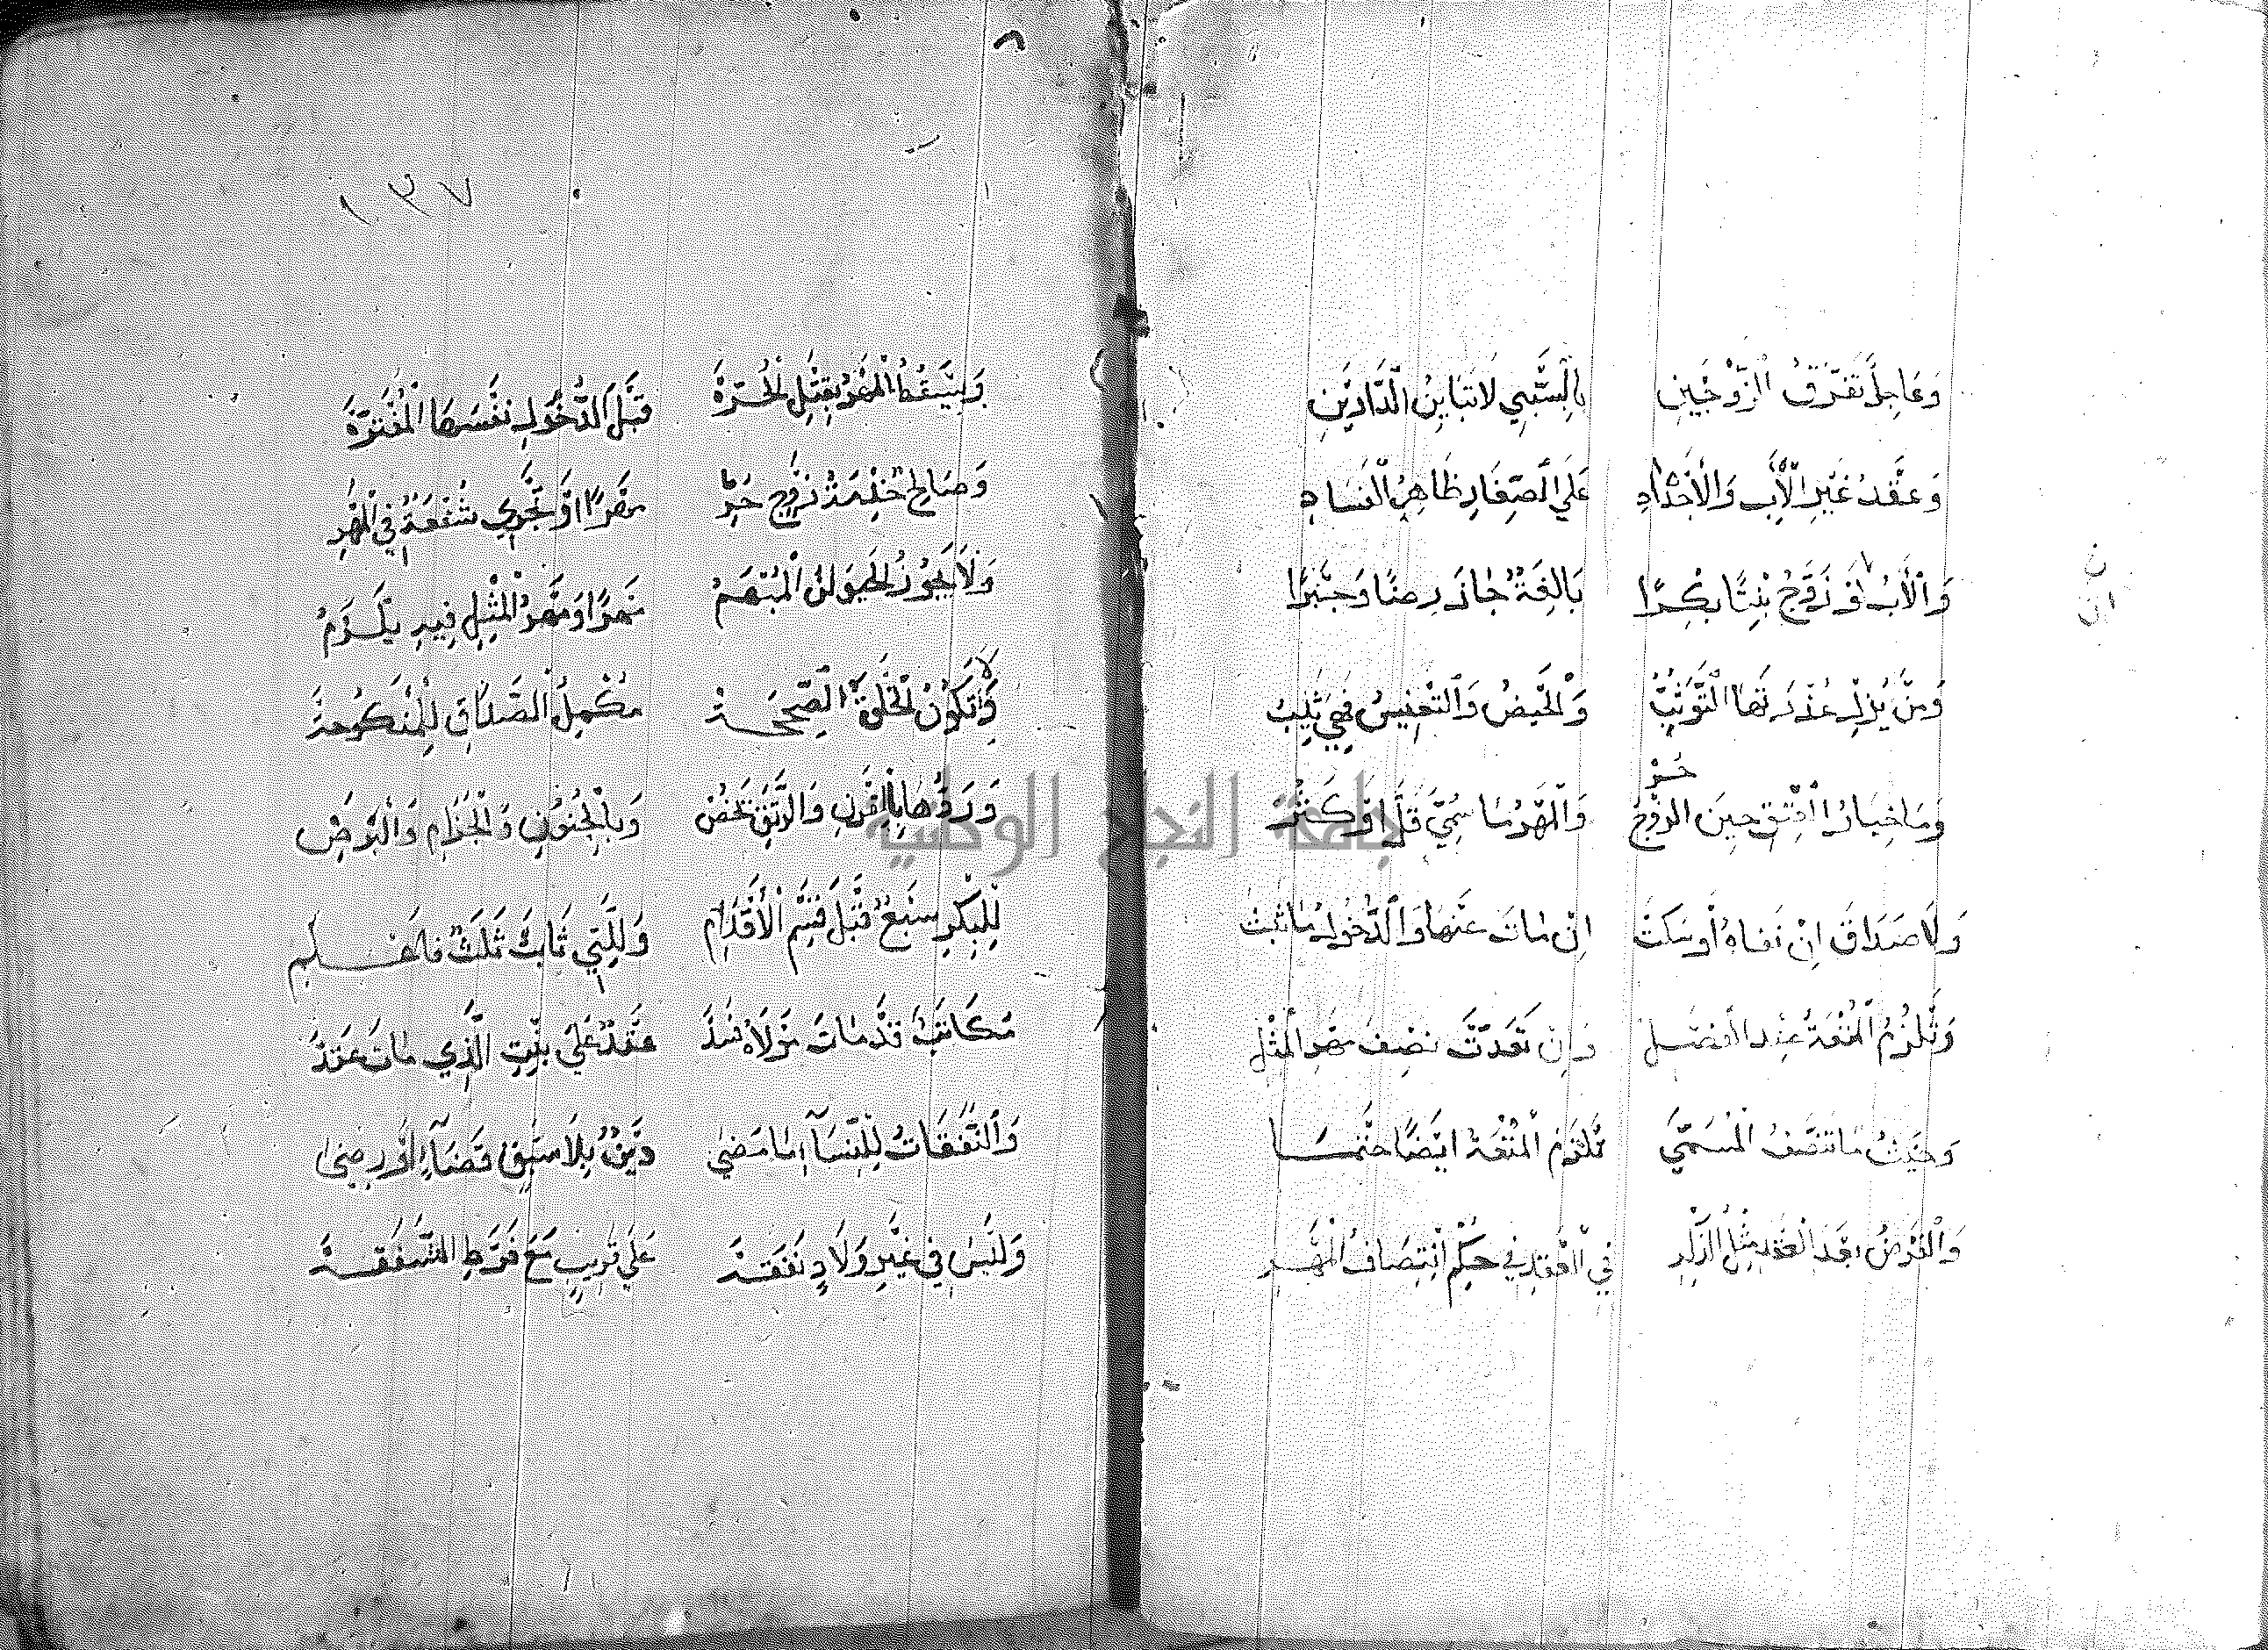 وَعَاجِلٌ تَفَرُّقُ الزَّوْجَيْنِ بِالسَّبْيِ لَا تَبَايُنُ الدَّارَيْنِ
وَعَقْدُ غَيْرِ الْأَبِ وَالْأَجْدَادِ عَلَي الصِّغَارِ ظَاهِرُ الْفَسَادِ
وَالْأَبُ لَوْ زَوَّجَ بِنْتًا بِكْرًا بَالِغَةً جَازَ رِضًا وَجَبْرًا
وَمَنْ يُزِلْ عُذْرَتَهَا التَّوَثُّبُ وَالْحَيْضُ وَالتَّعْنِيسُ فَهِيَ ثَيِّبُ
حُرّ
وَمَا خِيَارُ الْعِتْقِ حِينَ الزَّوْجُ وَالْمَهْرُ مَا سُمِّيَ قَلَّ اوْ كَثُرْ
وَلَا صَدَاقَ اِنْ نَفَاهُ أَوْ سَكَتْ اِنْ مَاتَ عَنْهَا وَالدُّخُولُ مَا ثَبَتْ
وَتَلْزَمُ الْمُتْعَةُ عِنْدَ الْفَصْلِ وَاِنْ تَعَدَّتْ نِصْفَ مَهْرِ الْمِثْلِ
وَحَيْثُ مَا تَنَصَّفَ الْمُسَمَّي تَلْزَمُ الْمُتْعَةُ ايْضًا حَتْمَا
وَالْفَرْضُ بَعْدَ الْعَقْدِ مِثْلُ الذِّكْرِ فِي الْعَقْدِ فِي حُكْمِ انْتِصَافِ الْمَهْرِ
١٣٧
وَيَسْقُطُ الْمَهْرُ بِقَتْلِ الْحُرَّةْ قَبْلَ الدُّخُولِ نَفْسَهَا الْمُغْتَرَّةْ
وَصَالِحٌ خِدْمَةُ زَوْجٍ حُرِّ مَهْرًا اوْ تَجْرِي شُفْعَةٌ فِي الْمَهْرِ
وَلَا يَجُوزُ الْحَيَوَانُ الْمُبْهَمُ مَهْرًا وَمَهْرُ الْمِثْلِ فِيهِ يَلْزَمُ
لَا وَتَكُونُ الْخَلْوَةُ الصَّحِيحَةْ مُكْمِلَ الصَّدَاقِ لِلْمَنْكُوحَةْ
وَرَدُّهَا بِالْقَرَنِ وَالرَّتَقِ وَبِالْجُنُونِ وَالْجُذَامِ وَالْبَرَصْ
لِلْبِكْرِ سَبْعٌ قَبْلَ قَسْمِ وَلِلَّتِي ثَابَتْ ثَلَاثٌ فَاعْلَمِ
مُكَاتَبٌ قَدْ مَاتَ مَوْلَاهُ عَقْدٌ عَلَى بِنْتِ الَّذِي مَاتَ
وَالنَّفَقَاتُ لِلنِّسَآءِ مَا مَضَي دَيْنٌ بِلَا سَبْقِ قَضَآءٍ اَوْ رِضَى
وَلَيْسَ فِي غَيْرِ وَلَادٍ نَفَقَةْ عَلَي قَرِيبٍ مَعَ فَرْطِ الشَّفَقَةْ
جامعة النجاح الوطنية